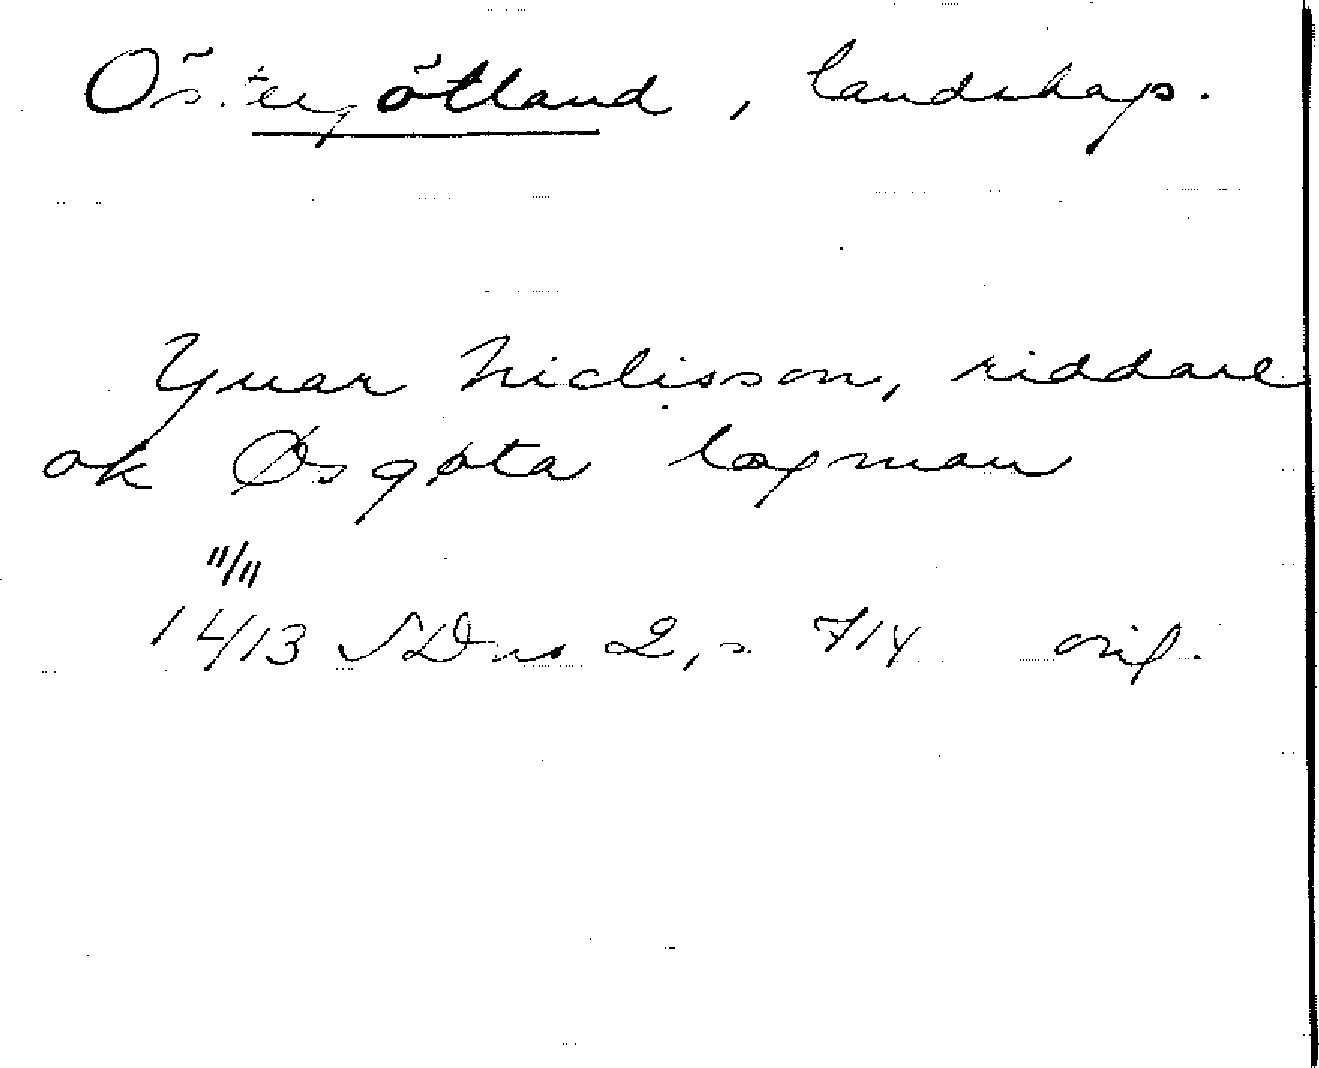 Östergötland, landskap.
Yuar Niclisson, riddare
ok Øsgøta lagman
11/11
1413 SDns 2, s. 714 orig.